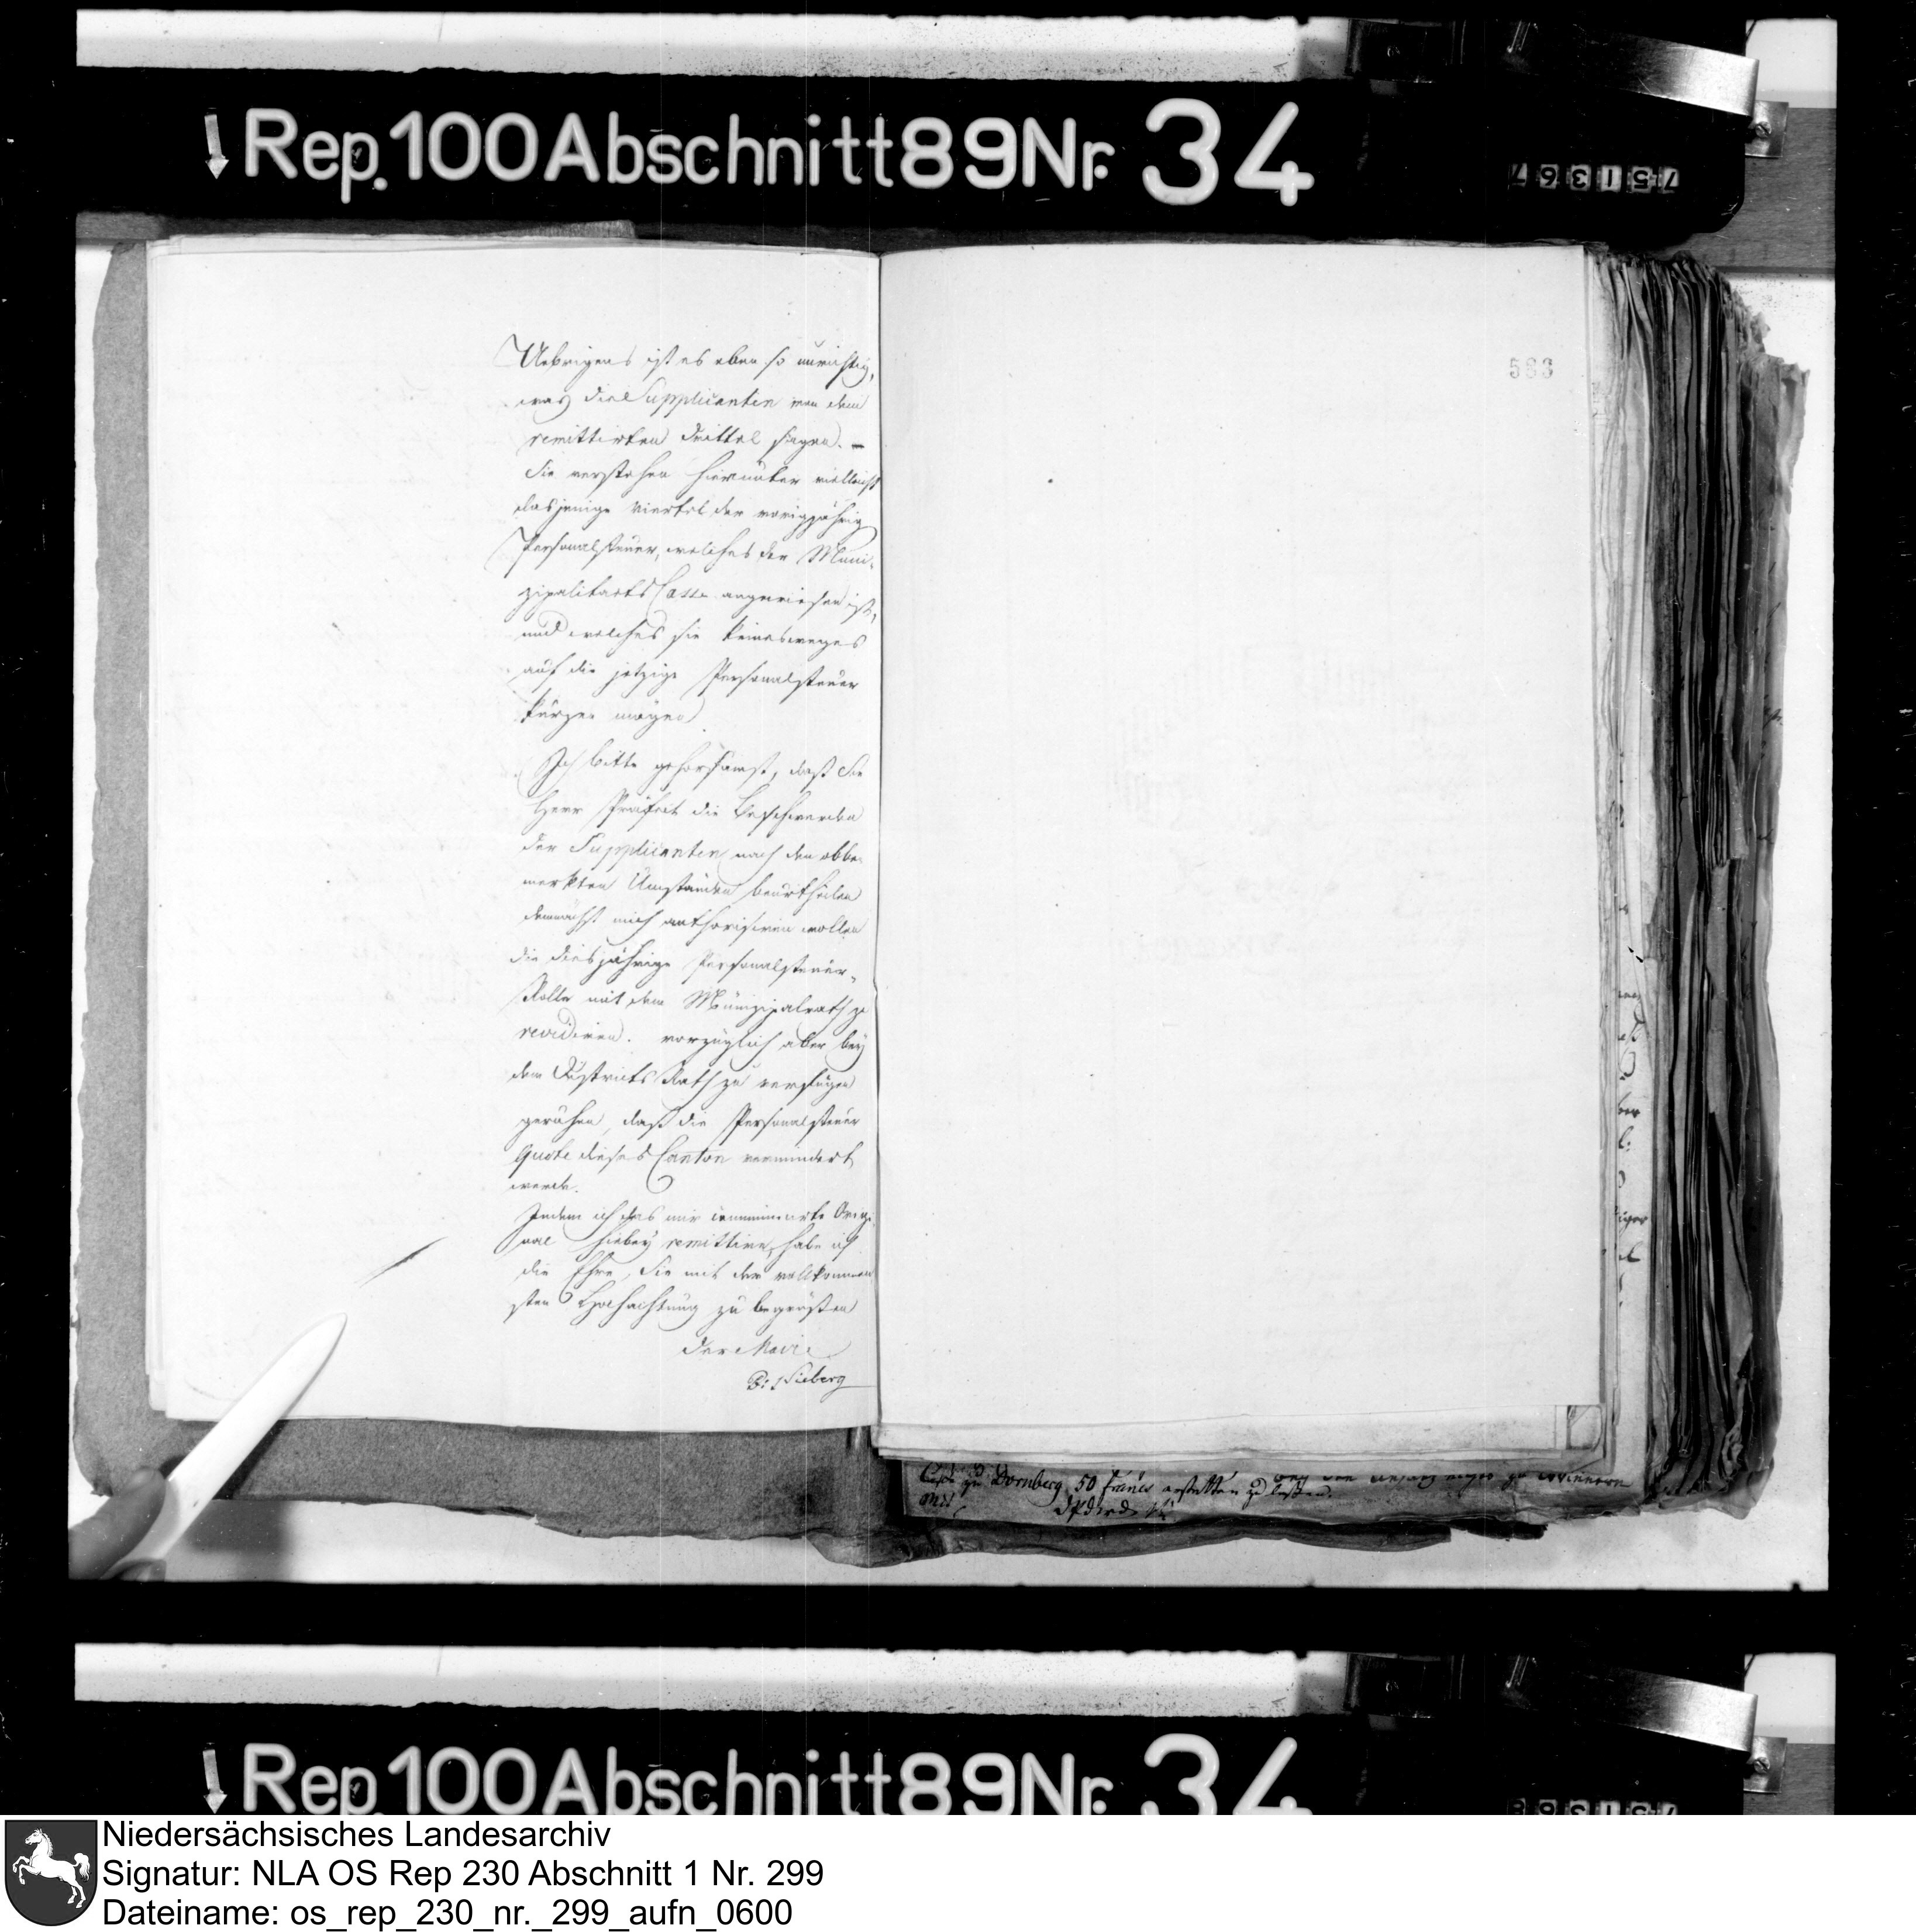 Rep. 100 Abschnitt 89 Nr. 34
751367
Uebrigens ist es eben so unrichtig,
was die Supplicanten von dem
remittirten Drittel sagen. –
Sie verstehen hierunter vielleicht
dasjenige Viertel der vorigjährig
Personalsteuer, welches der Muni-
zipalitaets Casse angewiesen ist,
und welches sie keinesweges
auf die jetzige Personalsteuer
kürzen mögen.
Ich bitte gehorsamst, daß Sie
Herr Präfect die Beschwerden
der Supplicanten nach den obbe-
merkten Umständen beurtheilen
demnächst mich authorisiren wollen
die diesjährige Personalsteuer-
Rolle mit dem Munizipalrath zu
revidiren. vorzüglich aber bey
dem Districts Rath zu verfügen
geruhen, daß die Personalsteuer
Quote dieses Canton vermindert
werde.
Indem ich das mir communicirte Origi-
nal hiebey remittire, habe ich
die Ehre, Sie mit der vollkommen
sten Hochachtung zu begrüßen
der Maire
Sieberg
583
zu Dornberg 50 Francs erstatten zu laßen.
Rep. 100 Abschnitt 89 Nr. 34
Niedersächsisches Landesarchiv
Signatur: NLA OS Rep 230 Abschnitt 1 Nr. 299
Dateiname: os_rep_230_nr._299_aufn_0600